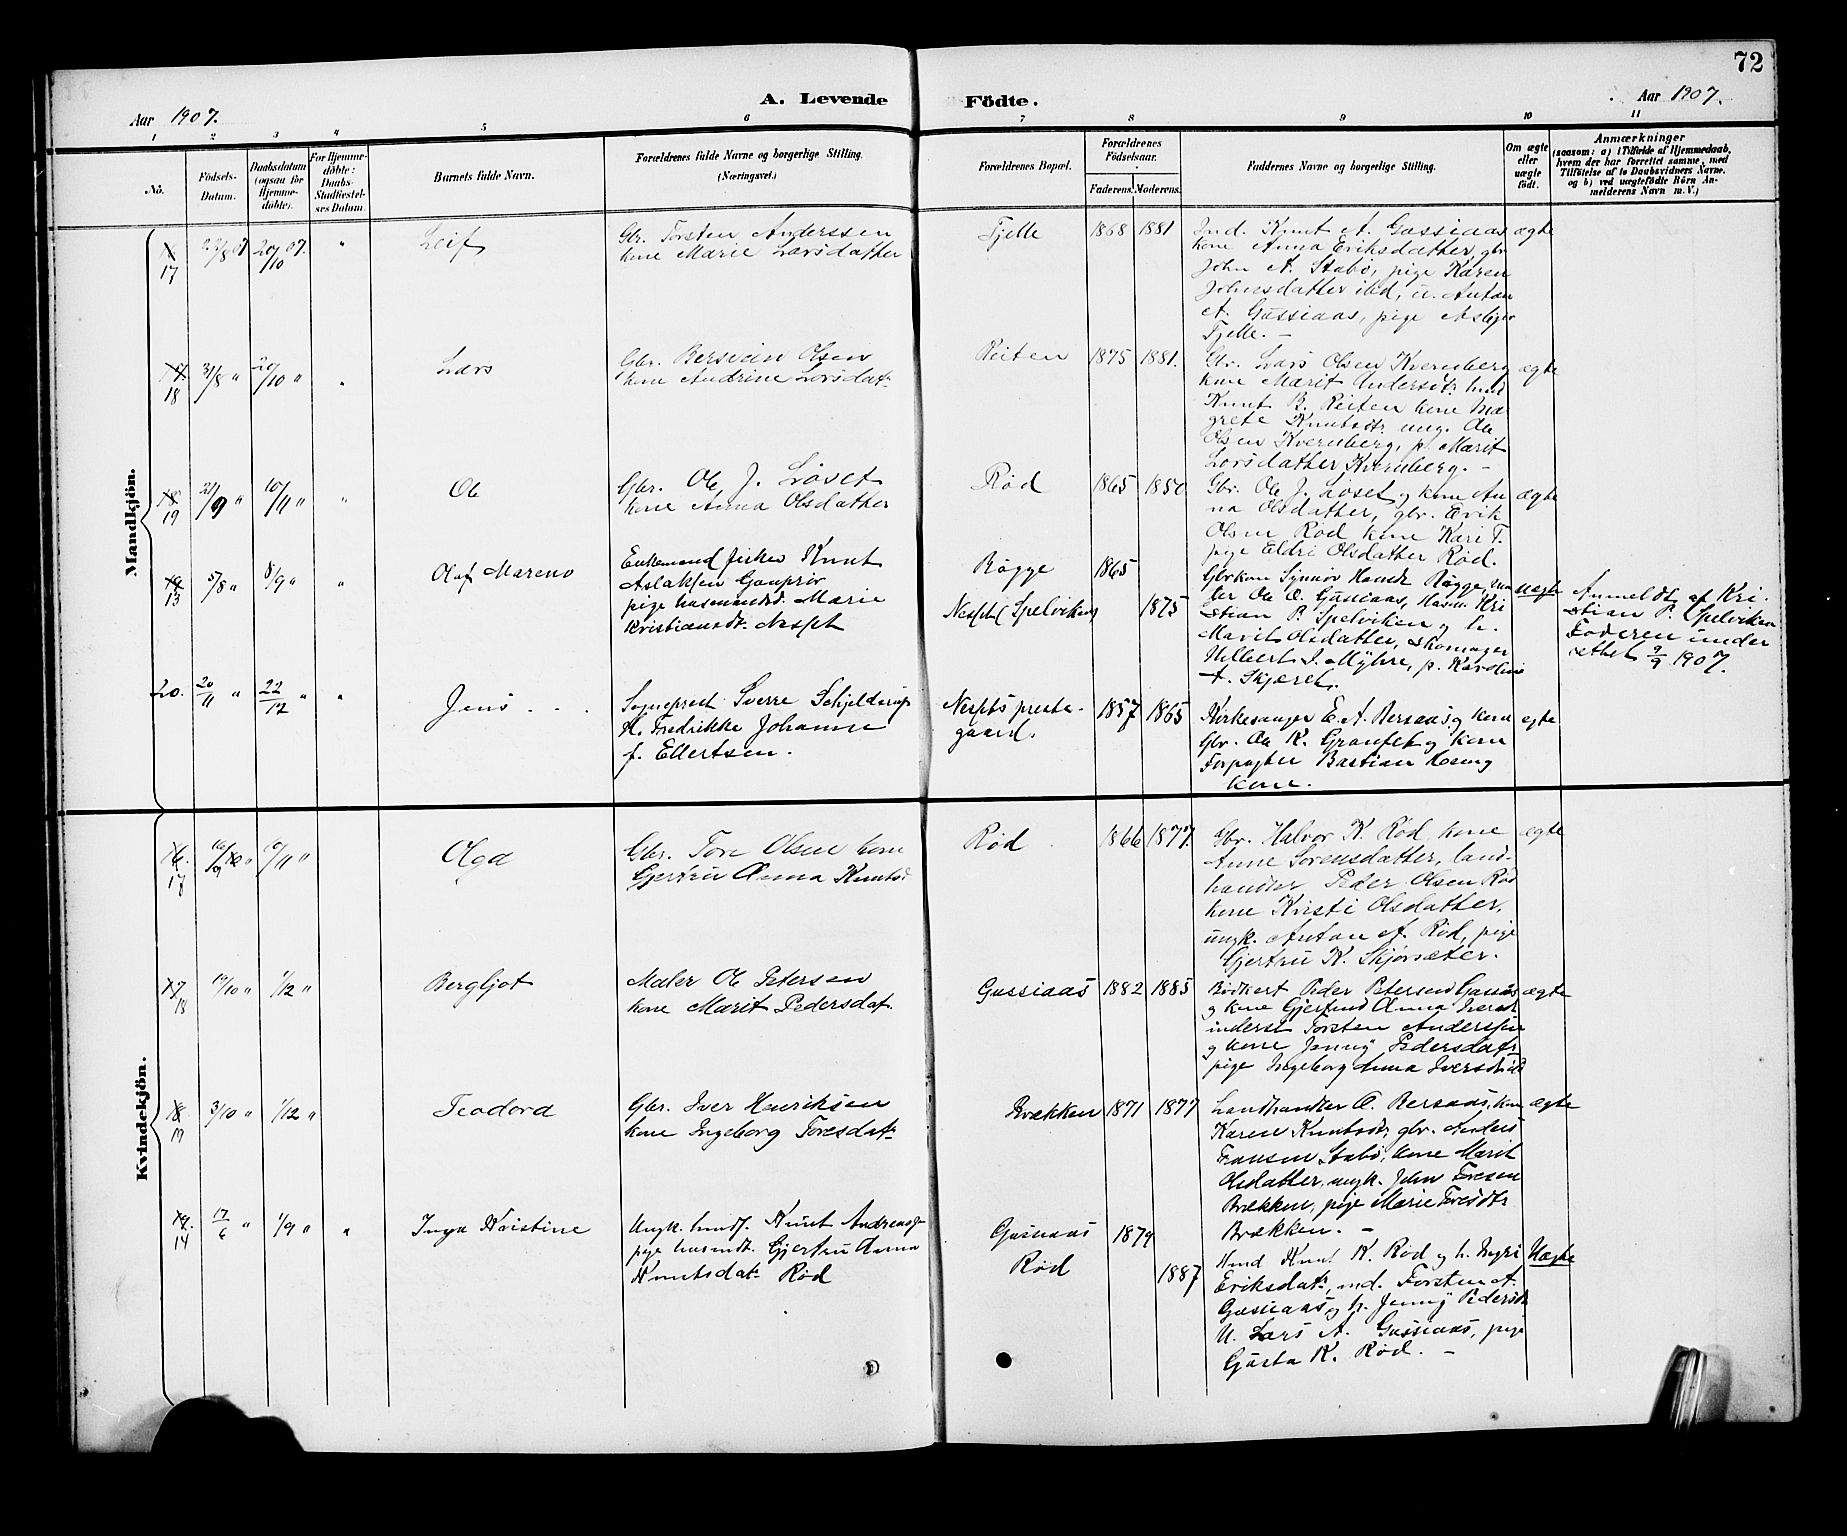 72
Aar 1907.
A. Levende
Födte.
Aar 1907.
1 2 3 4 5 6 7 8 9 10 11
No.
Fødsels-Datum.
Daabsdatum (ogsaa for Hjemme-døbte).
For Hjemme-døbte: Daabs-Stadfæstel-ses Datum.
Barnets fulde Navn.
Forældrenes fulde Navne og borgerlige Stilling. (Næringsvei.)
Forældrenes Bopæl.
Forældrenes Fødselsaar.
Faderens. Moderens.
Faddernes Navne og borgerlige Stilling.
Om ægte eller uægte født.
Anmærkninger
(saasom: a) i Tilfælde af Hjemmedaab,
hvem der har forrettet samme, med
Tilføielse af to Daabsvidners Navne,
og b) ved uægtefødte Börn An-
melderens Navn m. V.)
Mandkjön.
17 22/8 07 20/10 07. " Leif
Gbr. Torsten Anderssen
kone Marie Larsdatter
Tjelle 1868 1881
Ind. Knut A. Gussiaas
kone Anna Eriksdatter, gbr
John A. Stabø, pige Karen
Johnsdatter ibd, u. Anton
A. Gussiaas, pige
Tjelle. —
ægte
18 31/8 " 20/10 " " Lars
Gbr. Bersvein Olsen
kone Andrine Larsdat.
Reiten 1875 1881.
Gbr. Lars Olsen Kvernberg
kone Marit Andersdt.
Knut B. Reiten kone Ma
grete Knutsdt. ung. Ola
Olsen Kvernberg, p. Marit
Larsdatter Kvernberg. —
ægte
19 21/9 " 10/11 " " Ole
Gbr. Ole J. Løset
kone Anna Olsdatter
Rød 1865 1850
Gbr. Ole J. Løset og kone An
na Olsdatter, gbr. Erik
Olsen Rød kone Kari T.
pige Eldri Olsdatter Rød.
ægte
13 5/8 " 8/9 " " Olaf Mareno
Enkemand fisker Knut
Aslaksen Gauprør
pige husmandsd. Marie
Kristiansdt. Nesset
Røgge 1865
Nesset (Spelviken) 1875
Gbrkone Synnøv Hansdt Røgge,
Ole O. Gussiaas, Husm. Kri
stian P. Spelviken og h.
Marit Olsdatter, skomager
J. Myhre, p. Karoline
A. Skjøret.
uægte
Anmeldt af Kri-
stian P. Spelviken
Faderen under
rettet 9/9 1907.
20. 20/11 " 22/12 " " Jens . .
Sogneprest Sverre Schjelderup
H. Fredrikke Johanne
f. Ellertsen.
Nessets preste-
gaard. 1857 1865
Kirkesanger E. A. Bersaas og kone
Gbr. Ole K. Granset og kone
Forpagter Bastian
kone.
ægte
Kvindekjön.
17 16/9 " 10/11 " Olga
Gbr. Tore Olsen kone
Gjertru Anna Knutsd
Rød 1866 1877.
Gbr. Halvor K. Rød, kone
Anne Sorensdatter, land-
handler Peder Olsen Rød
kone Kristi Olsdatter,
ungk. Anton A. Rød, pige
Gjertru K. Skjørsæter.
ægte
18 19/10 " 1/12 " Bergljot
Maler Ole Petersen
kone Marit Pedersdat.
Gussiaas 1882 1885
Bødker Peder Petersen Gussiaas
og kone Gjertrud Anna Iversdt
inderst Torsten Anderssen
og kone Jenny Pedersdatr
pige Ingeborg Anna Iversdt
ægte
19 3/10 " 1/12 " Teodora
Gbr. Iver Henriksen
kone Ingeborg Toresdat.
Brækken 1871 1877
Landhandler A. Bersaas, kone
Karen Knutsdt, gbr. Anders
Hansen Stabø, kone Marit
Olsdatter, ungk. John Toresen
Brækken, pige Marie Toresdtr
Brækken. —
ægte
14 17/6 " 1/9 " " Inga Kristine
Ungk. Knut Andreas
pige husmdt. Gjertru Anna
Knutsdat. Rød
Gussiaas 1879
Rød 1887
Hmd Knut K. Rød og h. Ingri
Eriksdat, md. Torsten A.
Gussiaas og h. Jenny Pedersdt
U. Lars A. Gussiaas, pige
Gusta K. Rød. —
Uægte